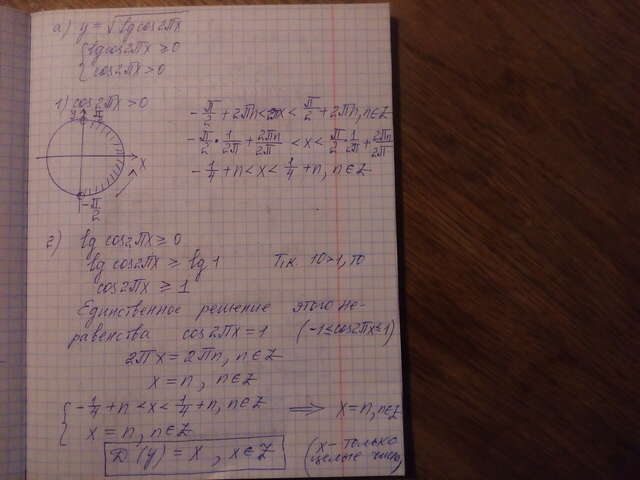 а) y = √lg cos2πx
{ lg cos2πx ≥ 0
{ cos2πx > 0
1) cos2πx > 0
y π/2
x
-π/2
-π/2 + 2πn < 2πx < π/2 + 2πn, n∈Z
-π/2 · 1/2π + 2πn/2π < x < π/2 · 1/2π + 2πn/2π
-1/4 + n < x < 1/4 + n, n∈Z
2) lg cos2πx ≥ 0
lg cos2πx ≥ lg 1 Т.к. 10>1, то
cos2πx ≥ 1
Единственное решение этого не-
равенства cos2πx = 1 (-1≤cos2πx≤1)
2πx = 2πn, n∈Z
x = n, n∈Z
{ -1/4 + n < x < 1/4 + n, n∈Z ⟹ x = n, n∈Z
{ x = n, n∈Z
D(y) = x, x∈Z (x - только
целые числа)